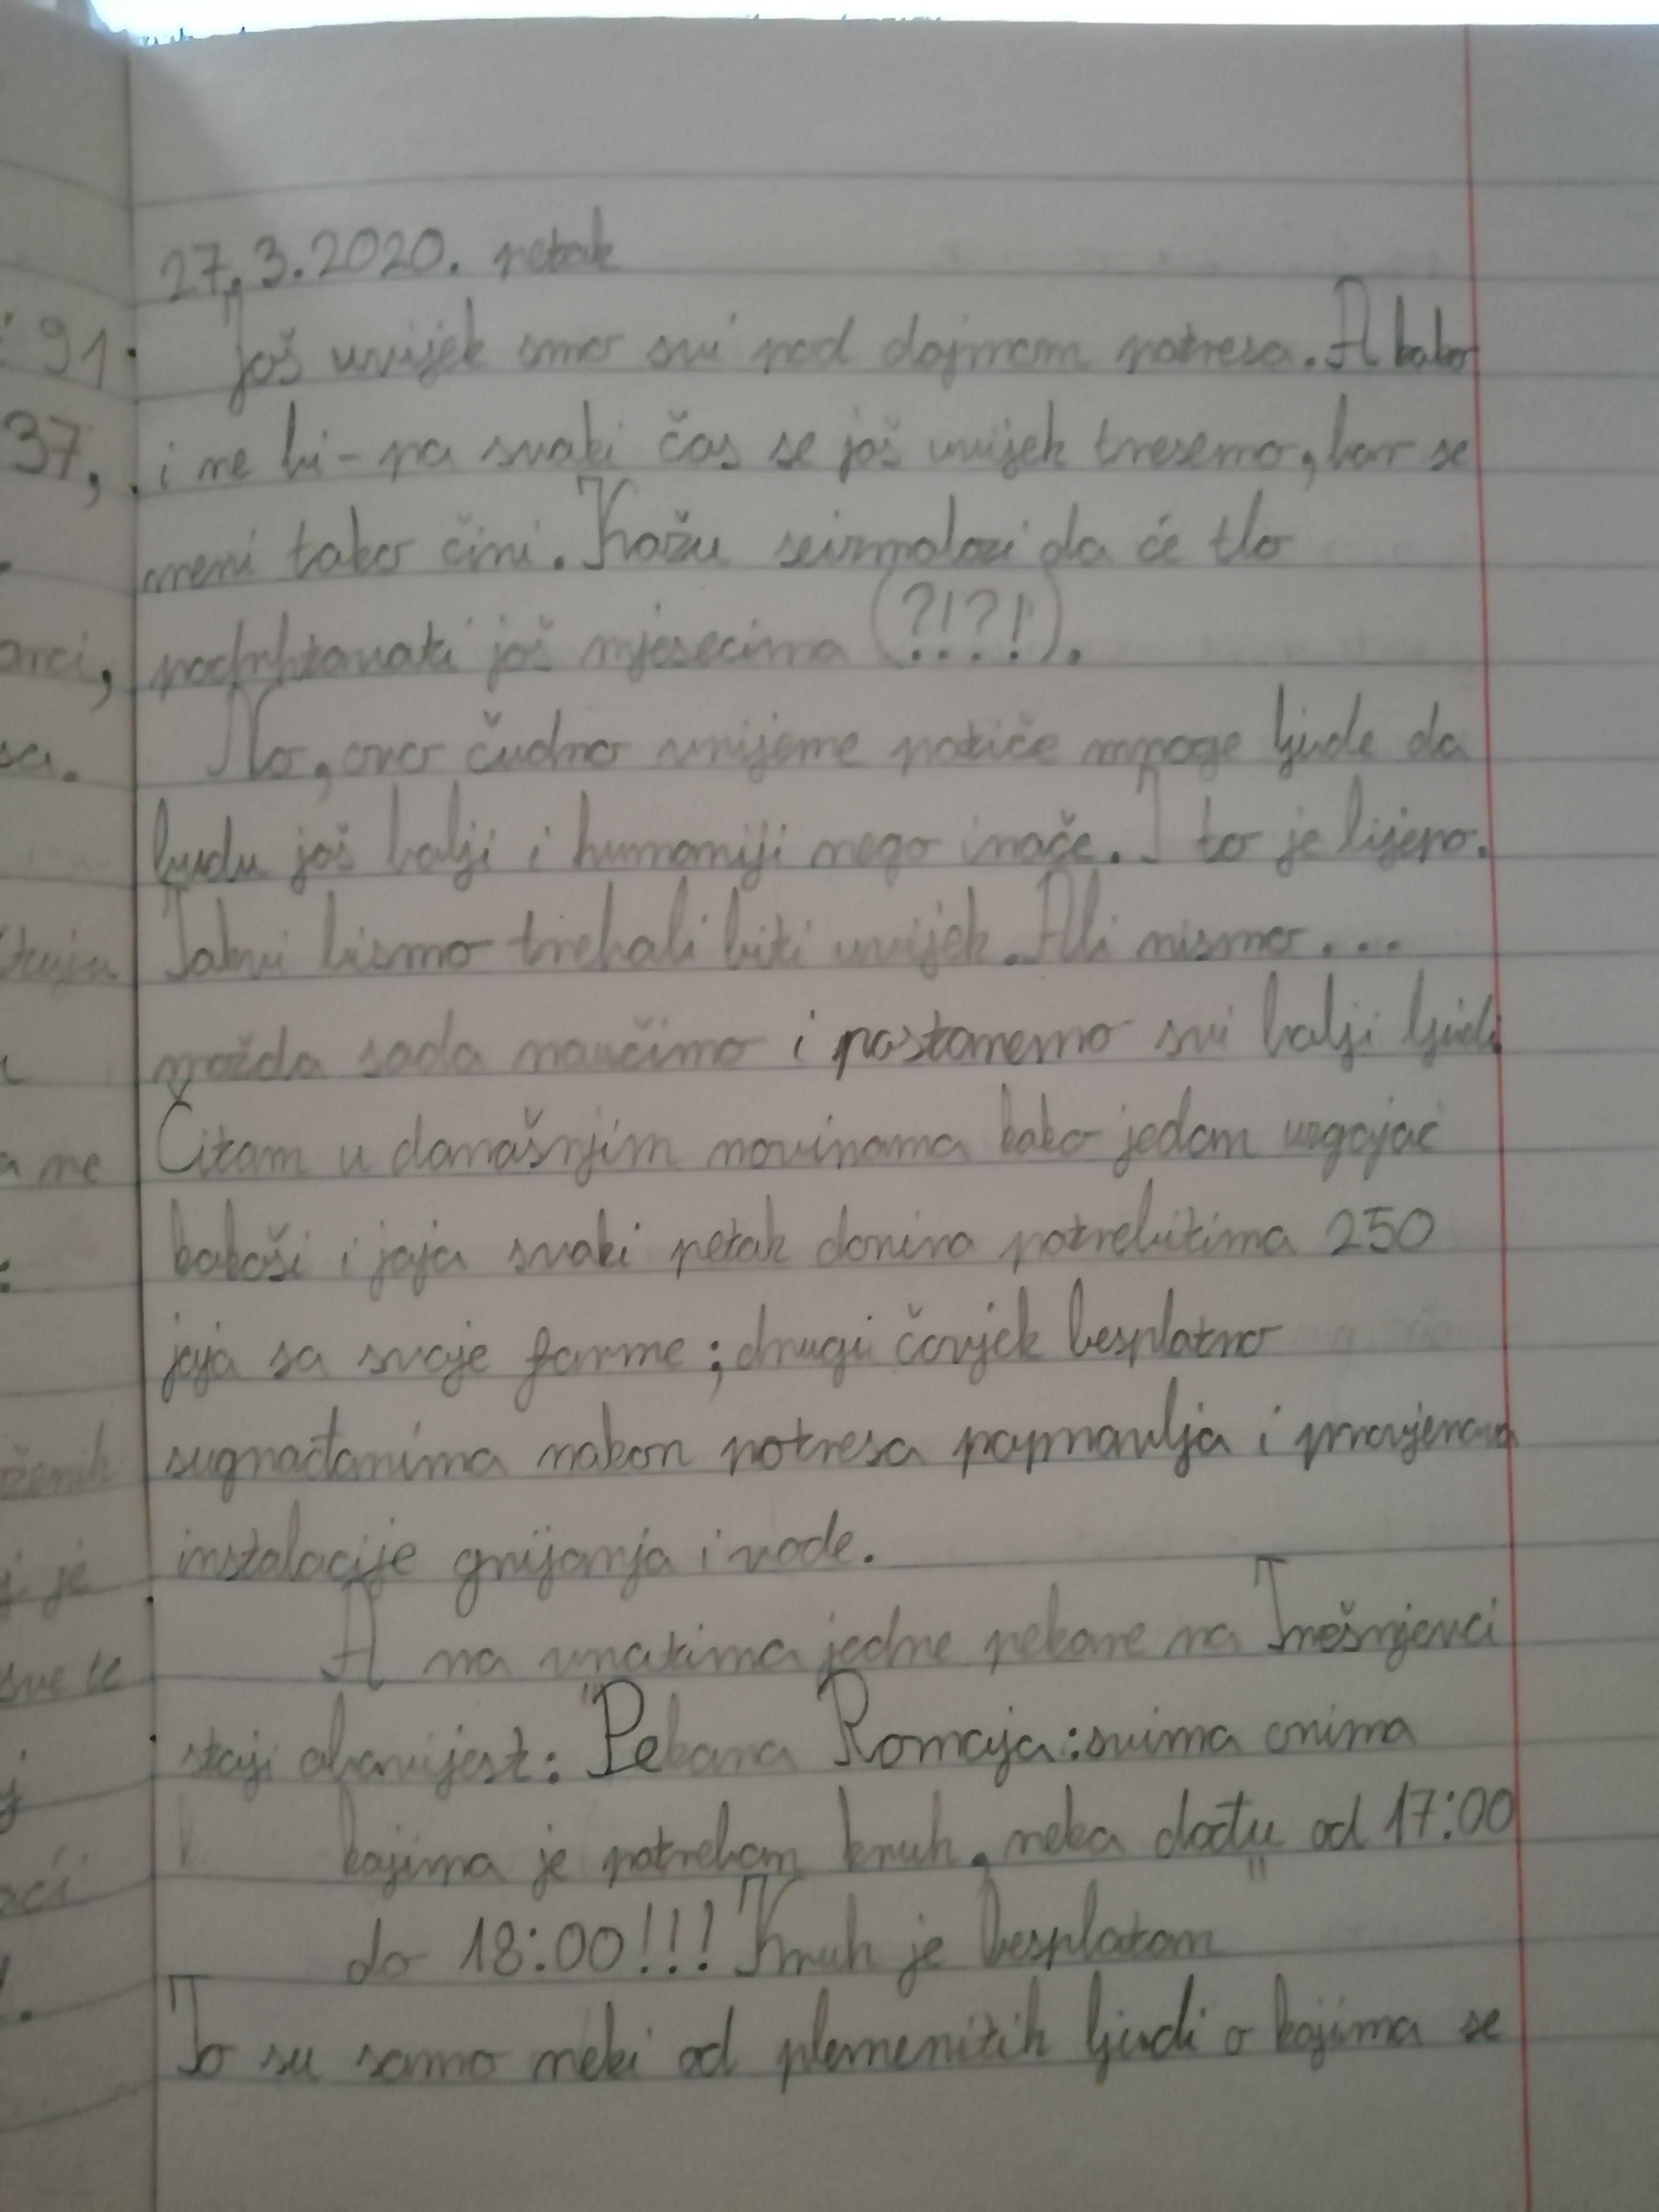 27.3.2020. petak
Još uvijek smo svi pod dojmom potresa. A kako
i ne bi - pa svaki čas se još uvijek tresemo, bar se
meni tako čini. Kažu seizmolozi da će tlo
podrhtavati još mjesecima (?!?!).
No, ovo čudno vrijeme potiče mnoge ljude da
budu još bolji i humaniji nego inače. I to je lijepo.
Takvi bismo trebali biti uvijek. Ali nismo....
možda sada naučimo i postanemo svi bolji ljudi.
Čitam u današnjim novinama kako jedan uzgajač
kokoši i jaja svaki petak donira potrebitima 250
jaja sa svoje farme; drugi čovjek besplatno
sugrađanima nakon potresa popravlja i provjerava
instalacije grijanja i vode.
A na vratima jedne pekare na Trešnjevci
stoji obavijest: "Pekara Romaja: svima onima
kojima je potreban kruh, neka dođu od 17:00
do 18:00!!! Kruh je besplatan"
To su samo neki od plemenitih ljudi o kojima se
91.
37,
sa.
a ne
:
je
sve te